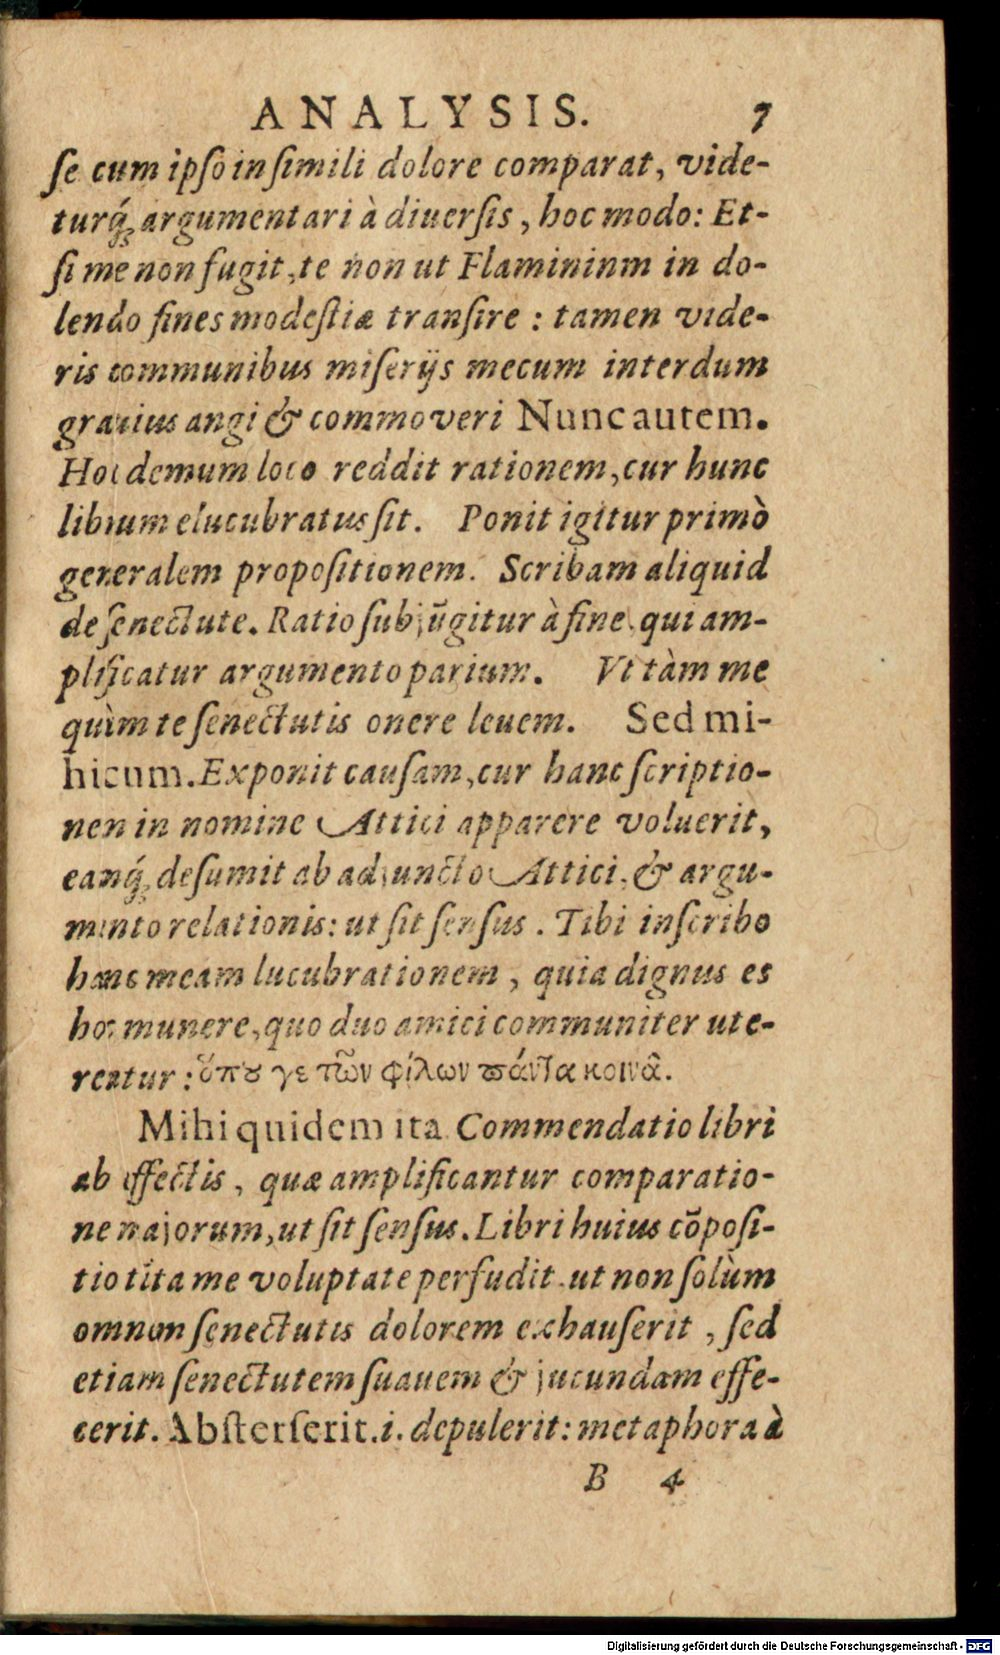 ANALYSIS. 7
ſe cum ipſo in ſimili dolore comparat, vide-
turq́; argumentari à diuerſis, hoc modo: Et-
ſi me non fugit, te non ut Flamininm in do-
lendo fines modeſtiæ tranſire: tamen vide-
ris communibus miſerijs mecum interdum
grauius angi & commoveri Nunc autem.
Hoc demum loco reddit rationem, cur hunc
librum elucubratus ſit. Ponit igitur primò
generalem propoſitionem. Scribam aliquid
de ſenectute. Ratio ſubjũgitur à fine, qui am-
plificatur argumento parium. Vt tàm me
quàm te ſenectutis onere leuem. Sed mi-
hi cum. Exponit cauſam, cur hanc ſcriptio-
nen in nomine Attici apparere voluerit,
eanq́; deſumit ab adjuncto Attici, & argu-
mento relationis: ut ſit ſenſus. Tibi inſcribo
hanc meam lucubrationem, quia dignus es
hoc munere, quo duo amici communiter ute-
rentur: ὅπου γε τῶν φίλων πάντα κοινᾶ.
Mihi quidem ita Commendatio libri
ab effectis, quæ amplificantur comparatio-
ne majorum, ut ſit ſenſus. Libri huius cõpoſi-
tio tita me voluptate perfudit, ut non ſolùm
omnen ſenectutis dolorem exhauſerit, ſed
etiam ſenectutem ſuauem & jucundam effe-
cerit. Abſterſerit. i. depulerit: metaphora à
B 4
Digitalisierung gefördert durch die Deutsche Forschungsgemeinschaft - DFG